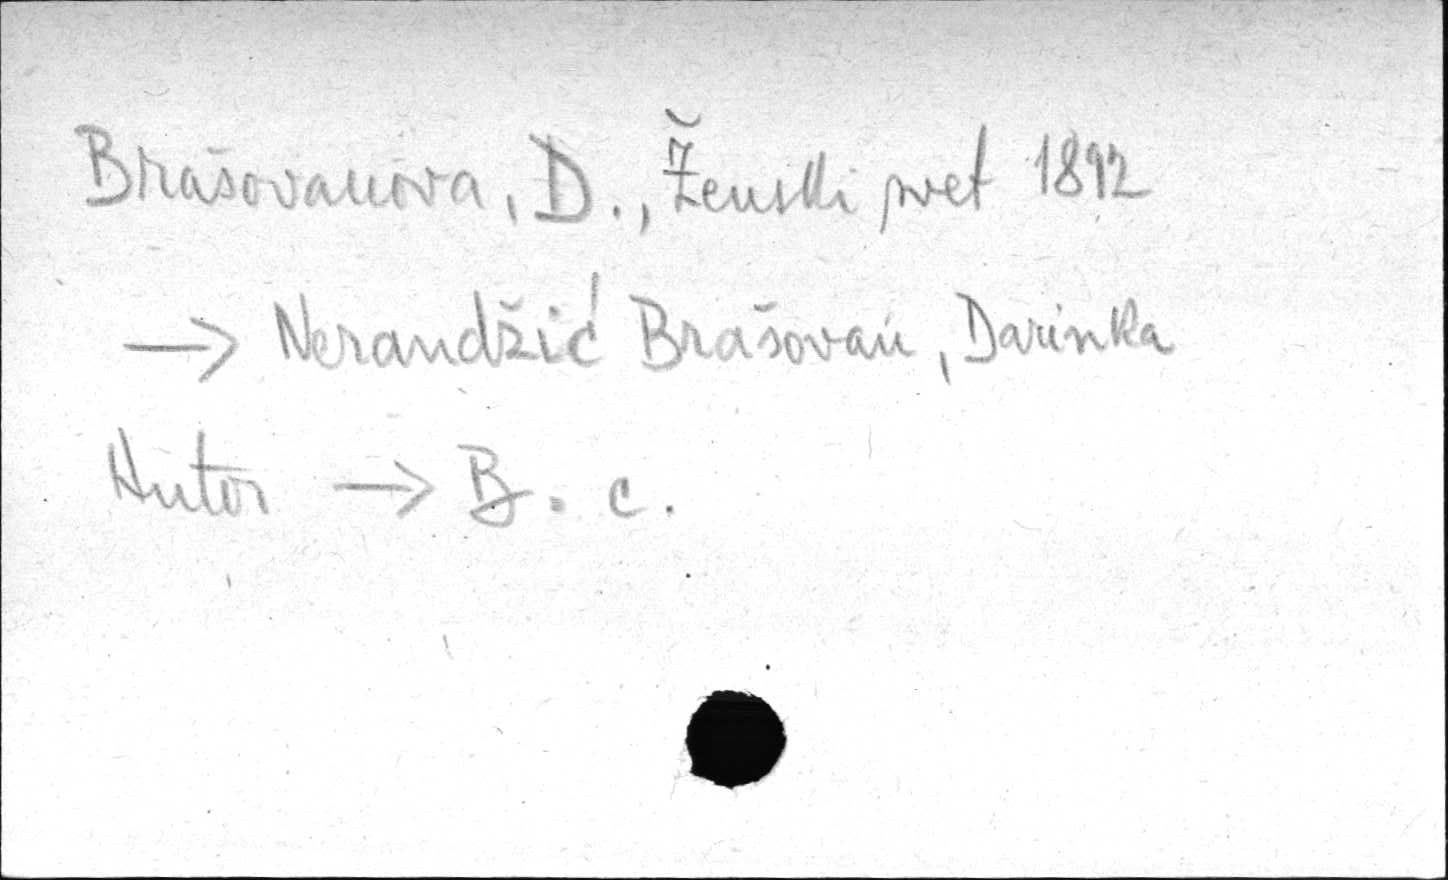 Brašovanova, D., Ženski svet 1892
→ Nerandžić Brašovan, Darinka
Autor → B. c.